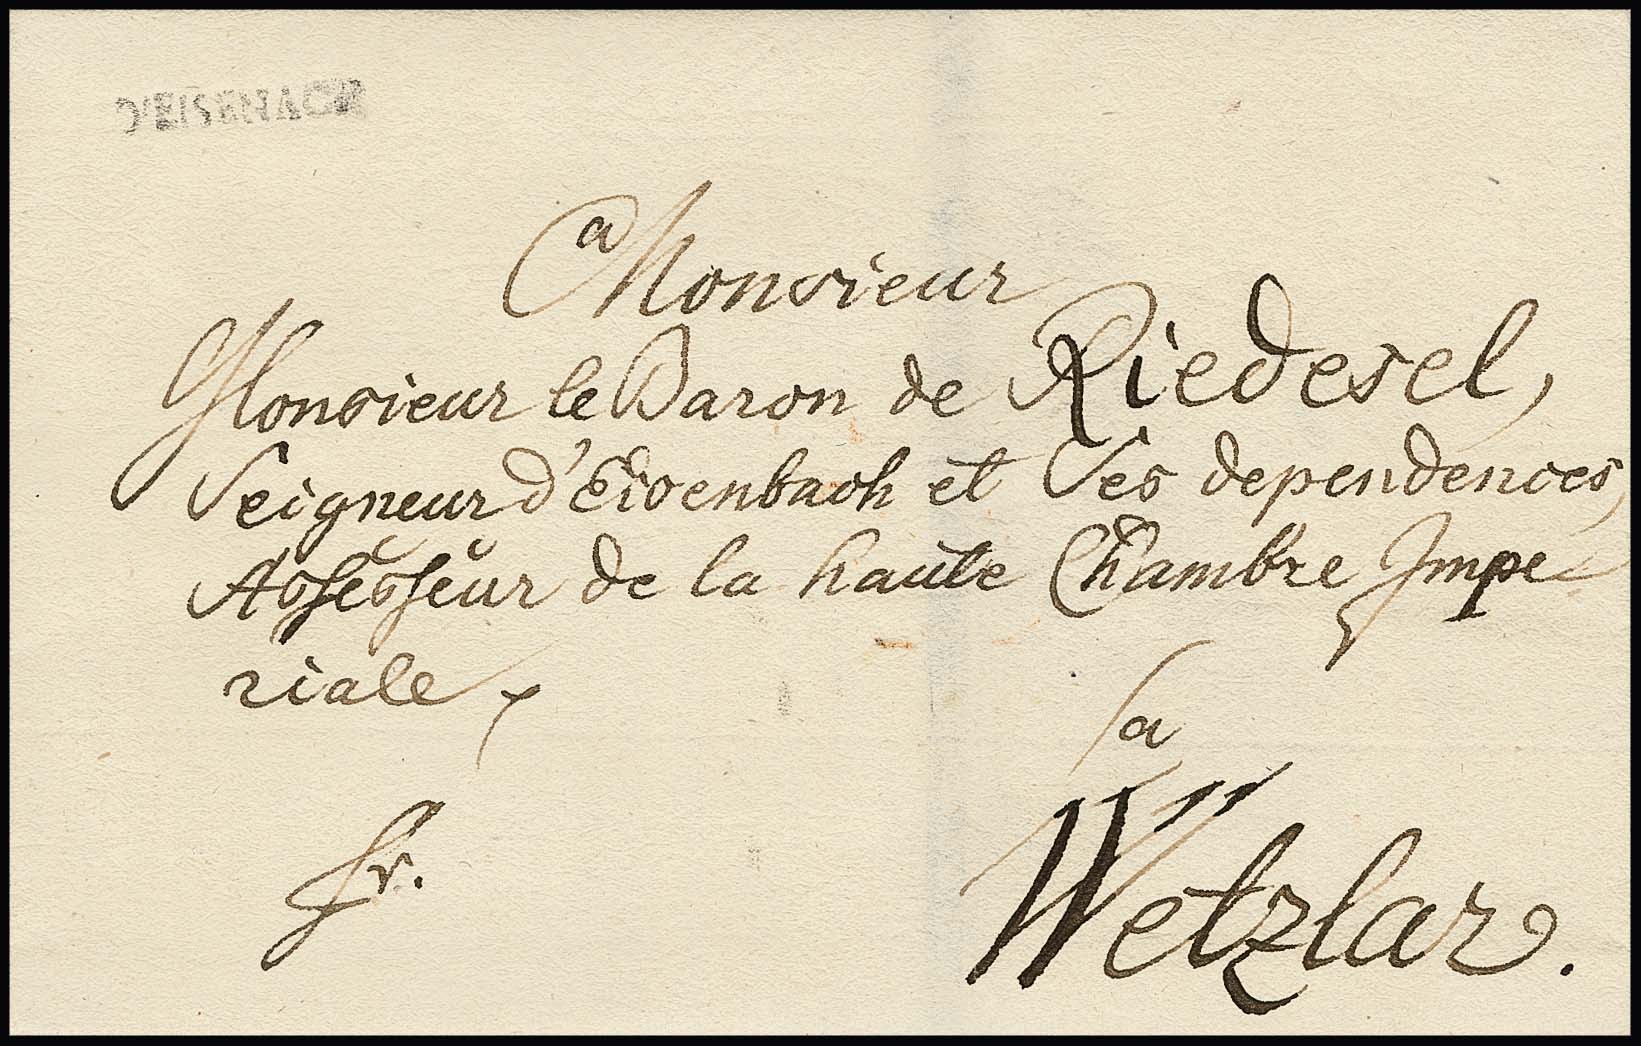 D'EISENACH
a Monsieur
Monsieur le Baron de Riedesel,
Seigneur d'Eisenbach et Ses dependences,
Assesseur de la haute Chambre Impe
riale,
a
fr.
Wetzlar.